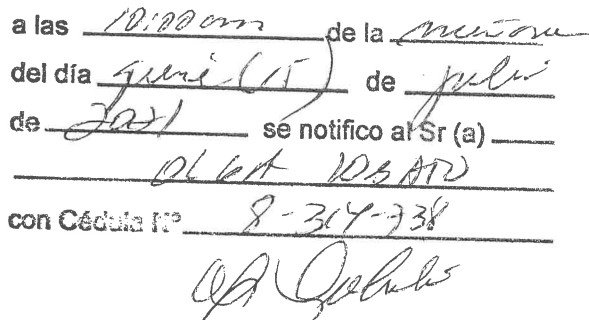 a las 10:00 am de la mañana
del día quince (15) de julio
de 2021 se notifico al Sr (a)
OLGA
con Cédula Nº 8-314-738